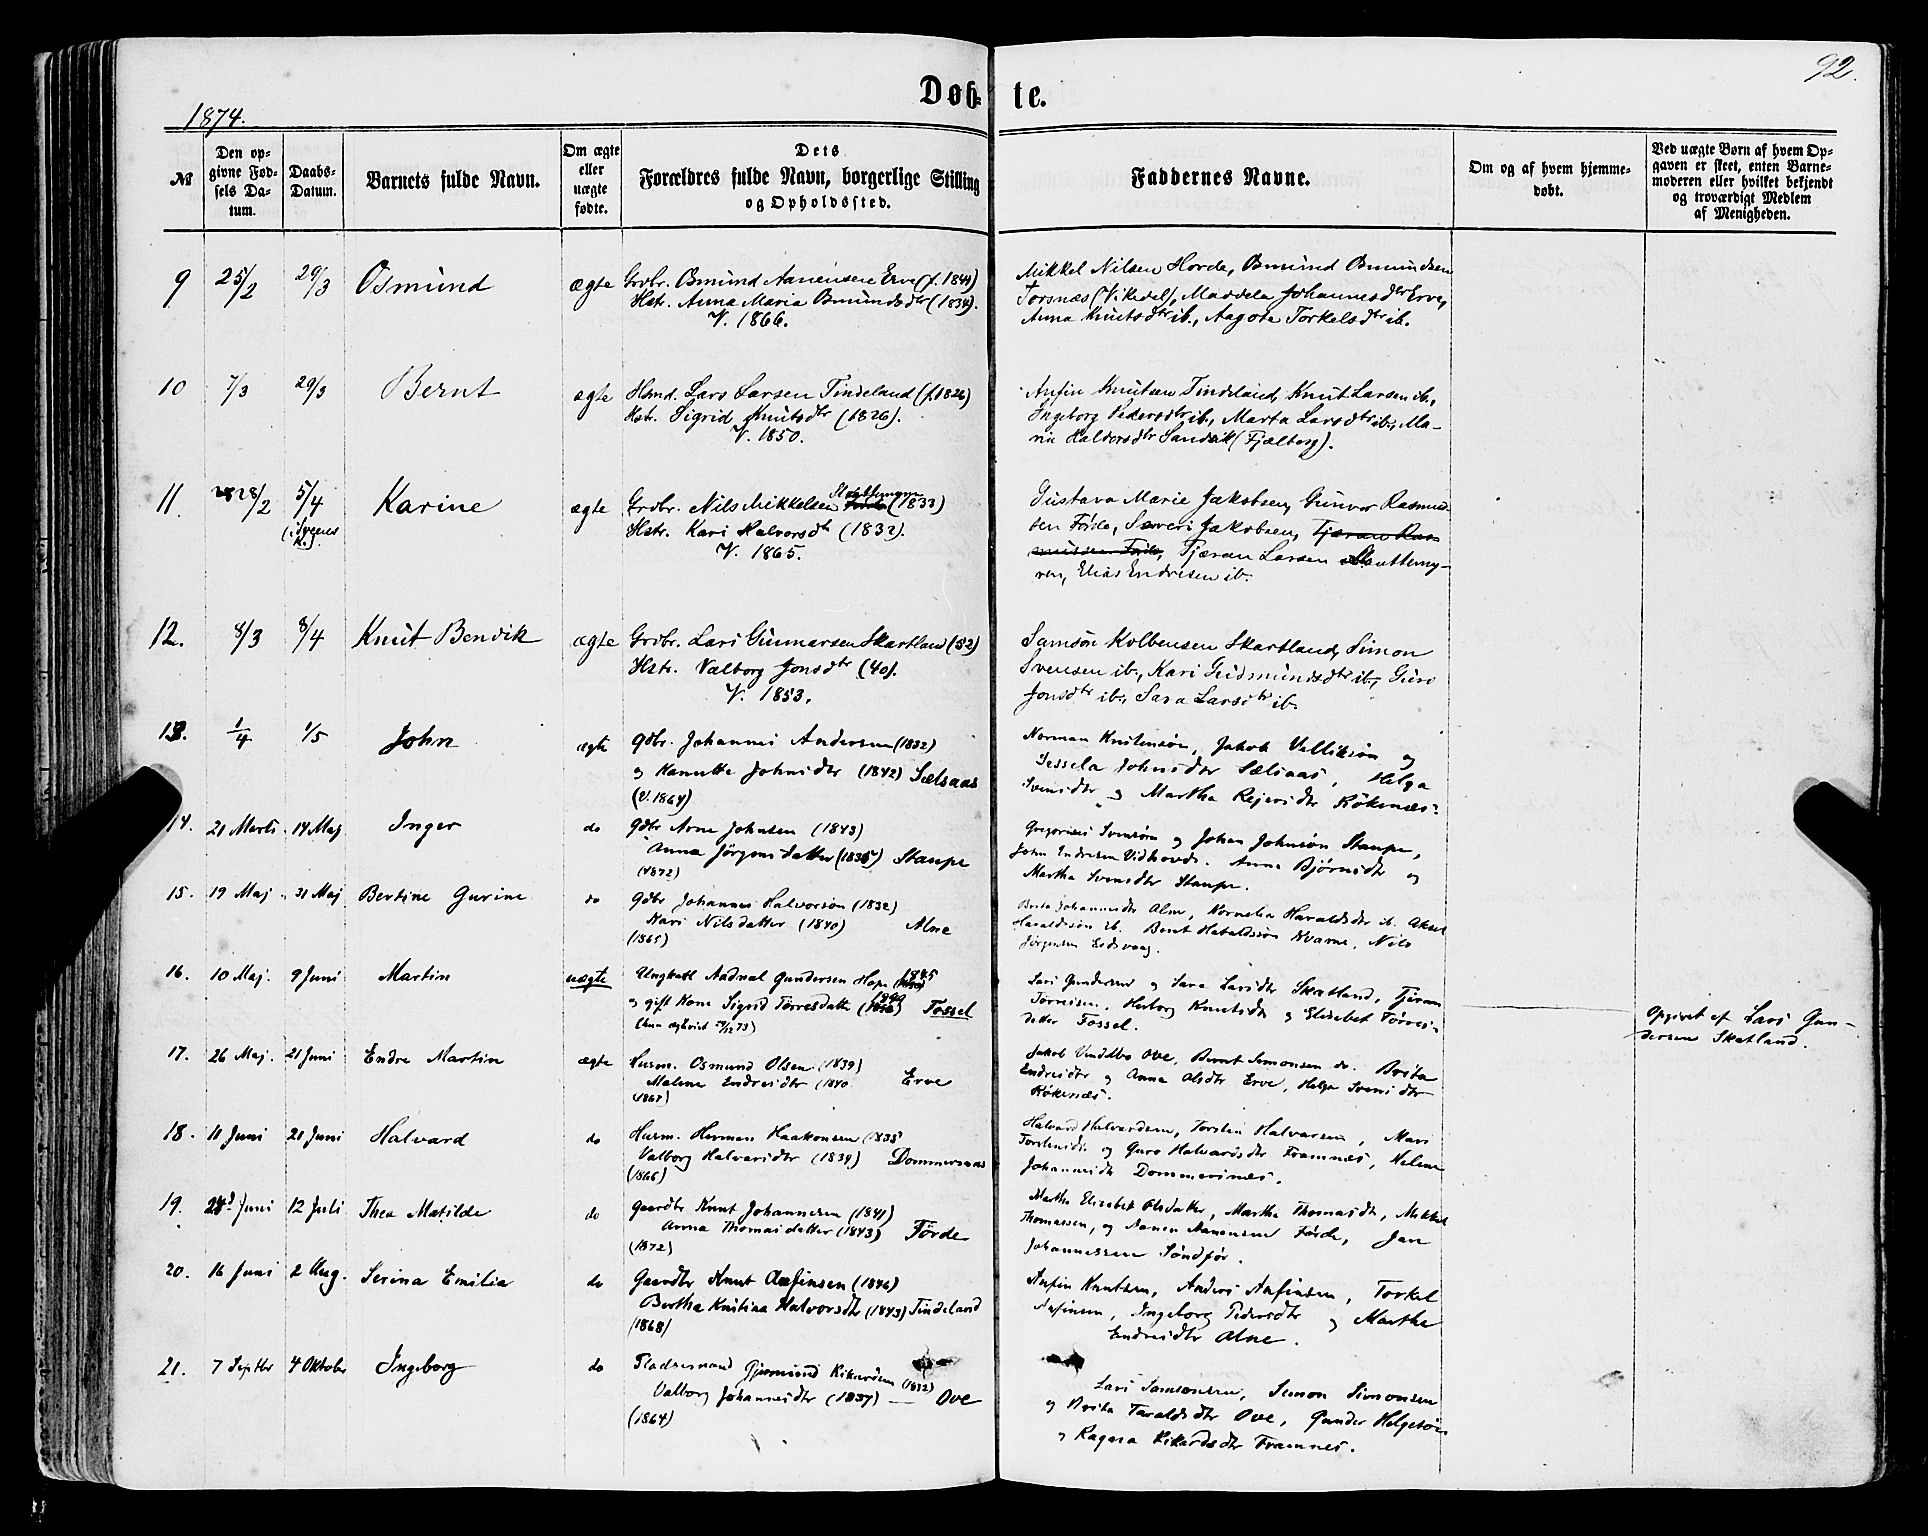 92.
Døb- te.
1874.
№
Den opgivne Fødsels Datum.
Daabs-Datum.
Barnets fulde Navn.
Om ægte eller uægte fødte.
Dets Forældres fulde Navn, borgerlige Stilling og Opholdssted.
Faddernes Navne.
Om og af hvem hjemmedøbt.
Ved uægte Børn af hvem Opgaven er skeet, enten Barnemoderen eller hvilket bekjendt og troværdigt Medlem af Menigheden.
9 25/2 29/3 Osmund ægte Grdbr. Osmund Aanensen Erve (f. 1844)
Hstr. Anna Maria Osmundsdtr (1834).
V. 1866.
Mikkel Nilsen Horde, Osmund Osmundsen
Torsnæs (Vikedal), Maddela Johannesdtr Erve,
Anna Knutsdtr ib., Aagota Torkelsdtr ib.
10 7/3 29/3 Bernt ægte Hsmd. Lars Larsen Tindeland (f. 1826)
Hst. Sigrid Knutsdtr (1826).
V. 1850.
Anfin Knutsen Tindeland, Knut Larsen ib.,
Ingeborg Pedersdtr ib., Marta Larsdtr ib., Ma-
ria Haldorsdtr Sandvik (Fjælberg).
11. 28/2 5/4 Karine ægte Grdbr. Nils Mikkelsen (1833)
Hstr. Kari Halvorsdtr (1832).
V. 1865.
Gustava Marie Jakobsen, Gunvor Rasmus-
sen Førde, Severi Jakobsen, Tjæran Ras-
mussen Førde, Tjæran Larsen Slottemy-
ren, Elias Endresen ib.
12. 8/3 8/4 Knut Bendik ægte Grdbr. Lars Gunnarsen Skartland (32)
Hstr. Valborg Jonsdtr (40).
V. 1853.
Samson Kolbensen Skartland, Simon
Svensen ib., Kari Gudmundsdtr ib., Guro
Jonsdtr ib., Sara Larsdtr ib.
13. 1/4 1/5 John ægte Gdbr. Johannes Andersen (1832)
og Kanutte Johnsdtr (1842) Sælsaas
(V. 1864)
Norman Kristensøn, Jakob Velliksøn og
Sessela Johnsdtr Sælsaas, Helga
Svensdtr og Martha Rejersdtr Røkenæs.
14. 21 Marts 14 Maj Inger do Gdbr Arne Johnsen (1843)
Anna Jørgensdatter (1835) Staupe
(1872)
Gregorius Svensøn og Johan Johnsøn Staupe,
John Endresen Vidhovde. Anna Bjørnsdtr og
Martha Svensdtr Staupe.
15. 19 Maj 31 Maj Bertine Gurine do Gdbr Johannes Halvorsøn (1832)
Kari Nilsdatter (1840) Alne
(1865)
Brita Johannesdtr Alne, Kornelia Haraldsdtr ib. Aksel
Haraldsøn ib. Bent Haraldssøn Kvarne, Nils
Jørgensen Eidsvaag.
16. 10 Maj. 9 Juni Martin uægte Ungkarl Aadnal Gundersen Hope 1845
og gift Kone Sigrid Tørresdatter 1840 Fossel
Lars Gundersen og Sara Larsdtr Skatland, Tjeran
Tørresen, Herborg Knutsdtr og Elisabet Tørres-
datter Fossel.
Opgivet af Lars Gun-
dersen Skatland.
17. 26 Maj. 21 Juni Endre Martin ægte Husm. Osmund Olsen (1839)
Malene Endresdtr (1840 Erve
(1867)
Jakob Vindelbo Ove, Bernt Simonsen do. Brita
Endresdtr og Anna Olsdtr Erve, Helga Svensdtr
Røkenæs.
18. 11 Juni 21 Juni Halvard do Husm. Herman Haakonsen (1835
Valborg Halvarsdtr (1834) Dommersnæs
(1866)
Halvard Halvardsen, Torstein Halvarsen, Mari
Torsteinsdtr og Guro Halvardsdtr Framnes, Helene
Johannesdtr Dommersnæs.
19. 24d Juni 12 Juli Thea Matilde do Gaardbr Knut Johannesen (1841)
Anna Thomasdatter (1843) Førde
(1872)
Martha Elisabet Olsdatter, Martha Thomasdtr, Mikkel
Thomassen, og Aanen Aanensen Førde, Jan
Johannessen Søndfør.
20. 16 Juni 2 Aug. Serina Emilia do Gaardbr Knut Anfinsen (1846)
Bertha Kristina Halvorsdtr (1843) Tindeland
(1868)
Anfin Knutsen, Anders Anfinsen, Torkel
Anfinsen, Ingeborg Pedersdtr og Martha
Endresdtr Alne.
21. 7 Septbr 4 Oktober Ingeborg do Pladsemand Gjermund Rikardsen (1832)
Valborg Johannesdtr (1837) — Ove
(1864)
Lars Samsonsen, Simon Simonsen
og Brita Taraldsdtr Ove, Gunder Helgesøn
og Ragna Rikardsdtr Framnes.